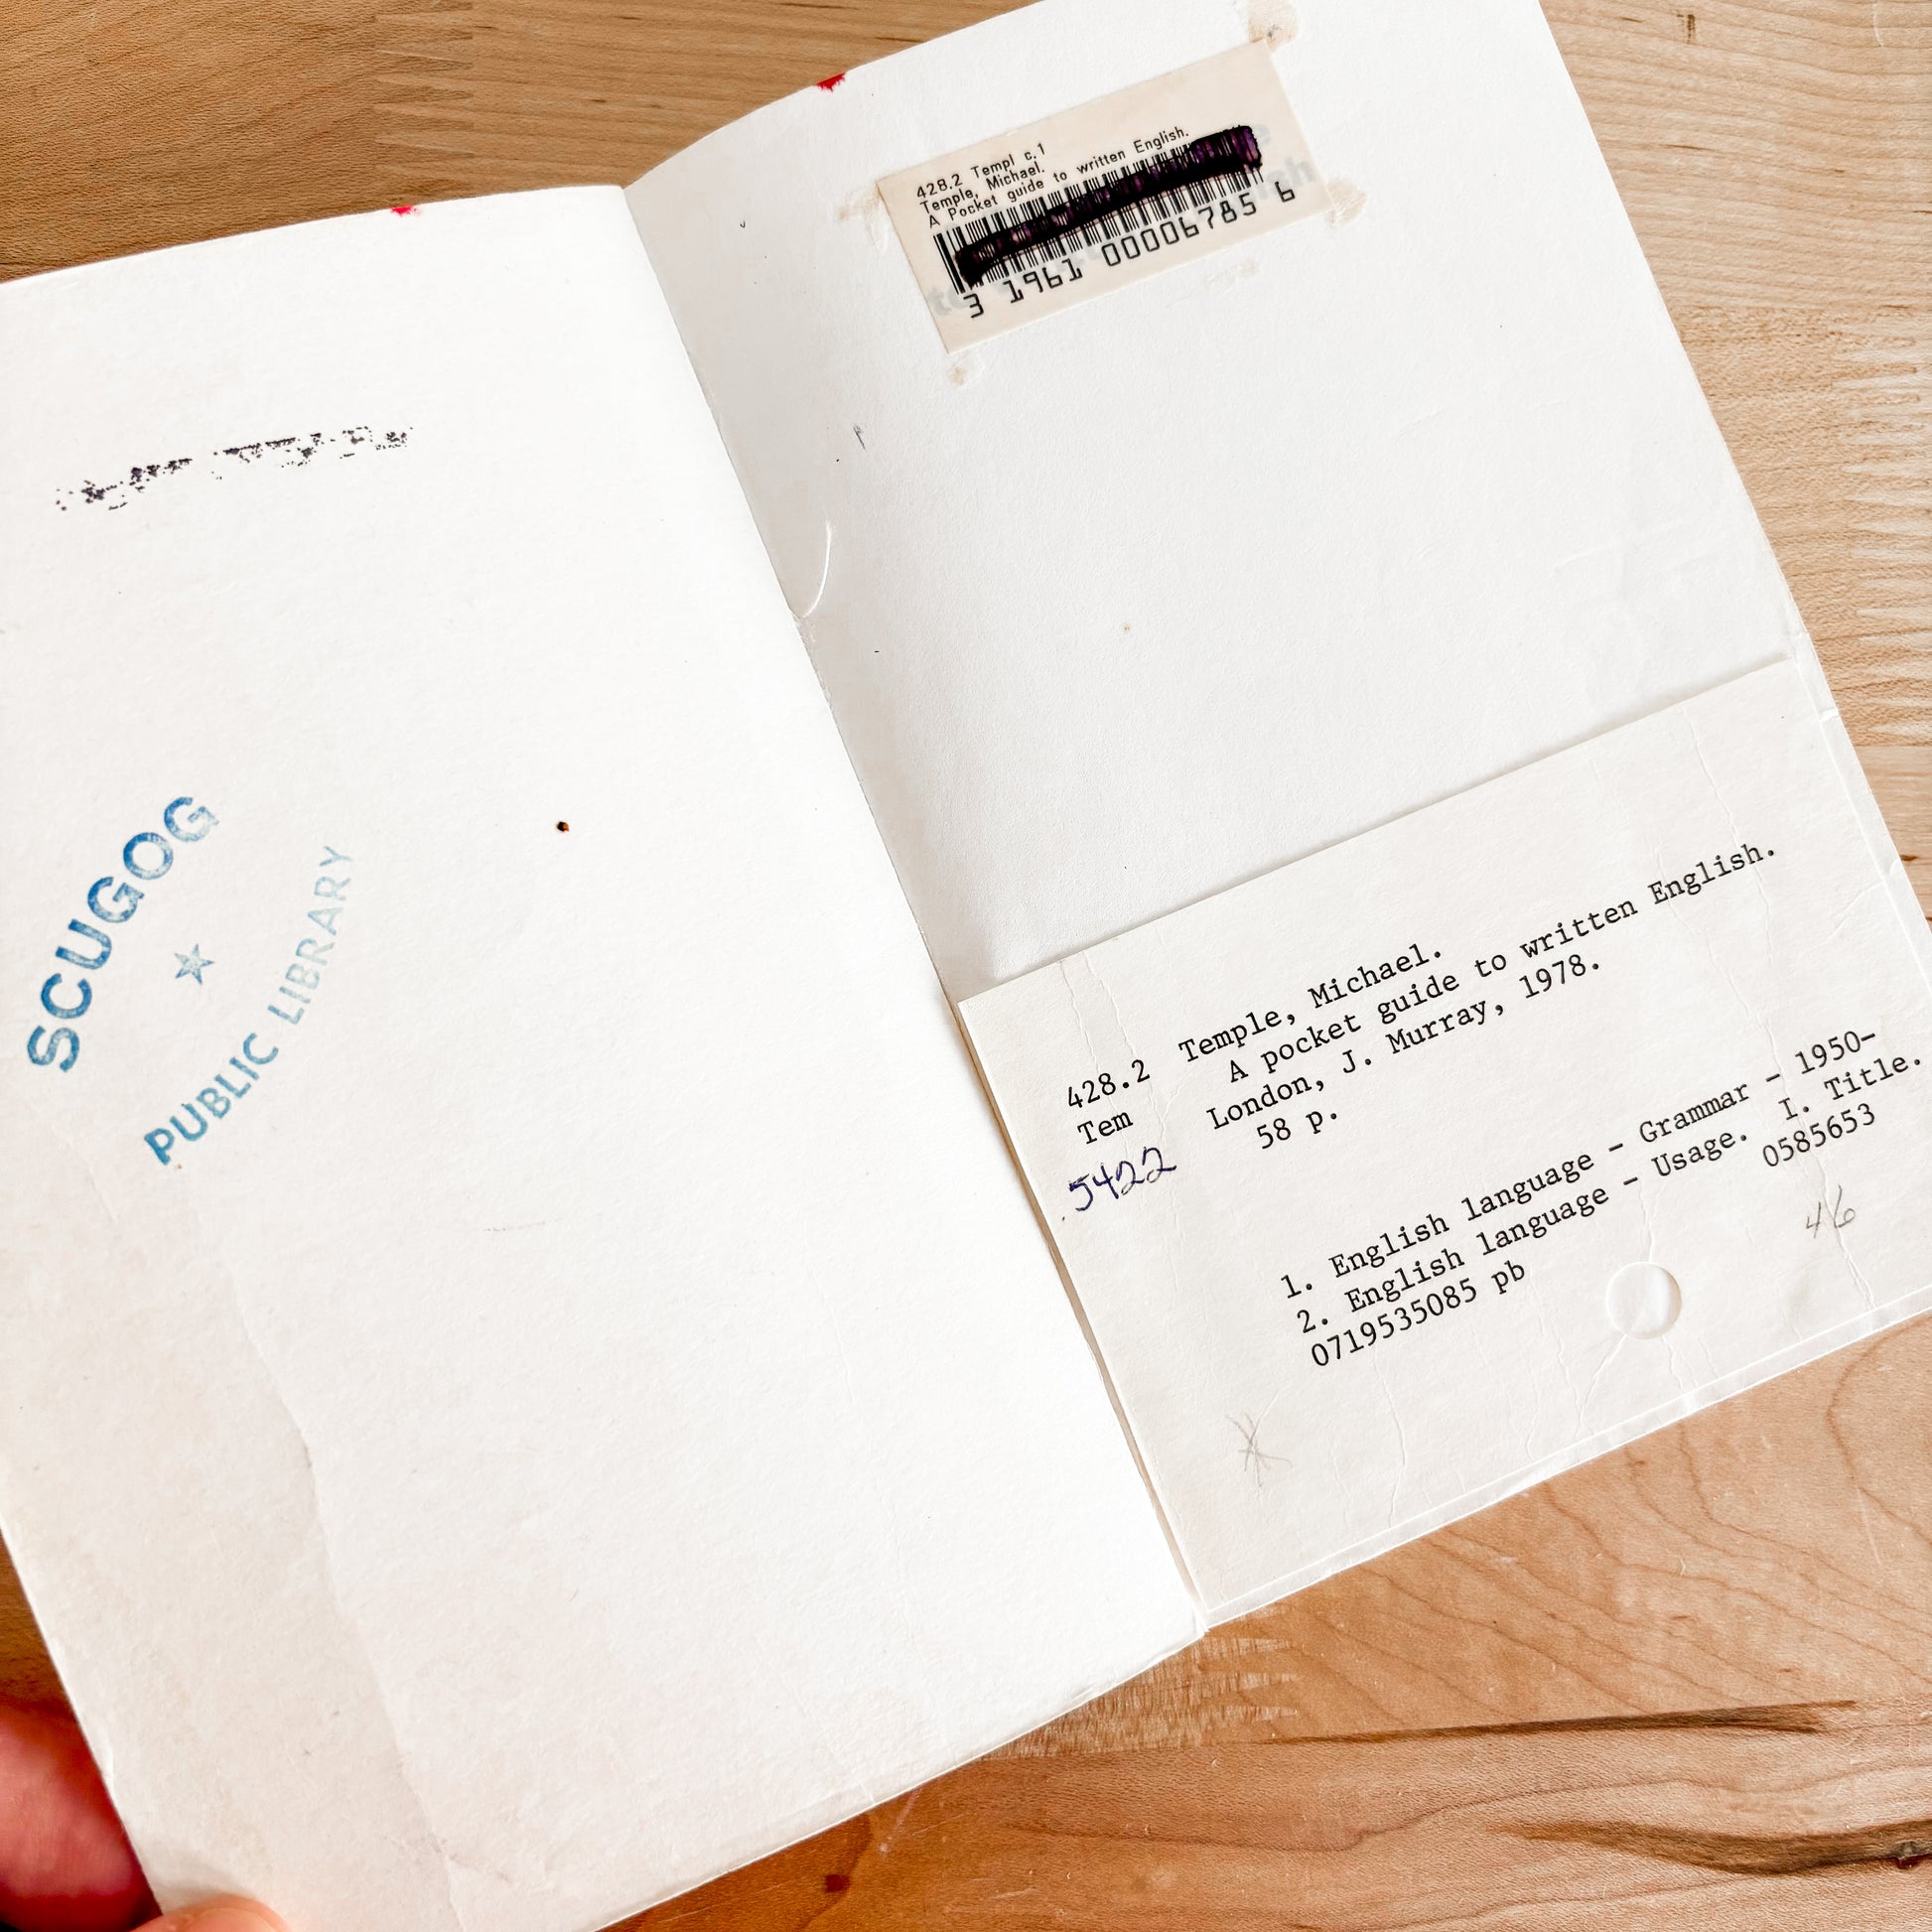 SCUGOG
PUBLIC LIBRARY
428.2 Templ c.1
Temple, Michael.
A Pocket guide to written English.
3 1961 00006785 6
428.2 Temple, Michael.
Tem A pocket guide to written English.
London, J. Murray, 1978.
58 p.
5422
1. English language - Grammar - 1950-
2. English language - Usage. I. Title.
0719535085 pb 0585653
46